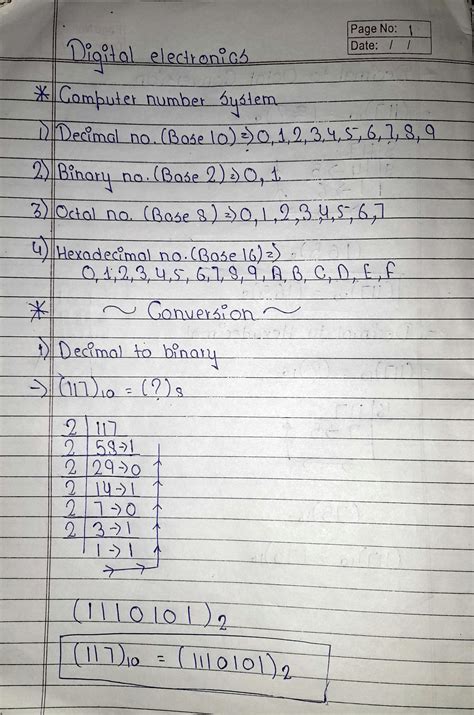 Page No: 1
Date: / /
Digital electronics
* Computer number system
1) Decimal no. (Base 10) ⇒ 0, 1, 2, 3, 4, 5, 6, 7, 8, 9
2) Binary no. (Base 2) ⇒ 0, 1
3) Octal no. (Base 8) ⇒ 0, 1, 2, 3, 4, 5, 6, 7
4) Hexadecimal no. (Base 16) ⇒
0, 1, 2, 3, 4, 5, 6, 7, 8, 9, A, B, C, D, E, F
* ~ Conversion ~
1) Decimal to binary
→ (117)10 = (?)8
2 | 117
2 | 58→1
2 | 29→0
2 | 14→1
2 | 7→0
2 | 3→1
1→1
(1110101)2
(117)10 = (1110101)2